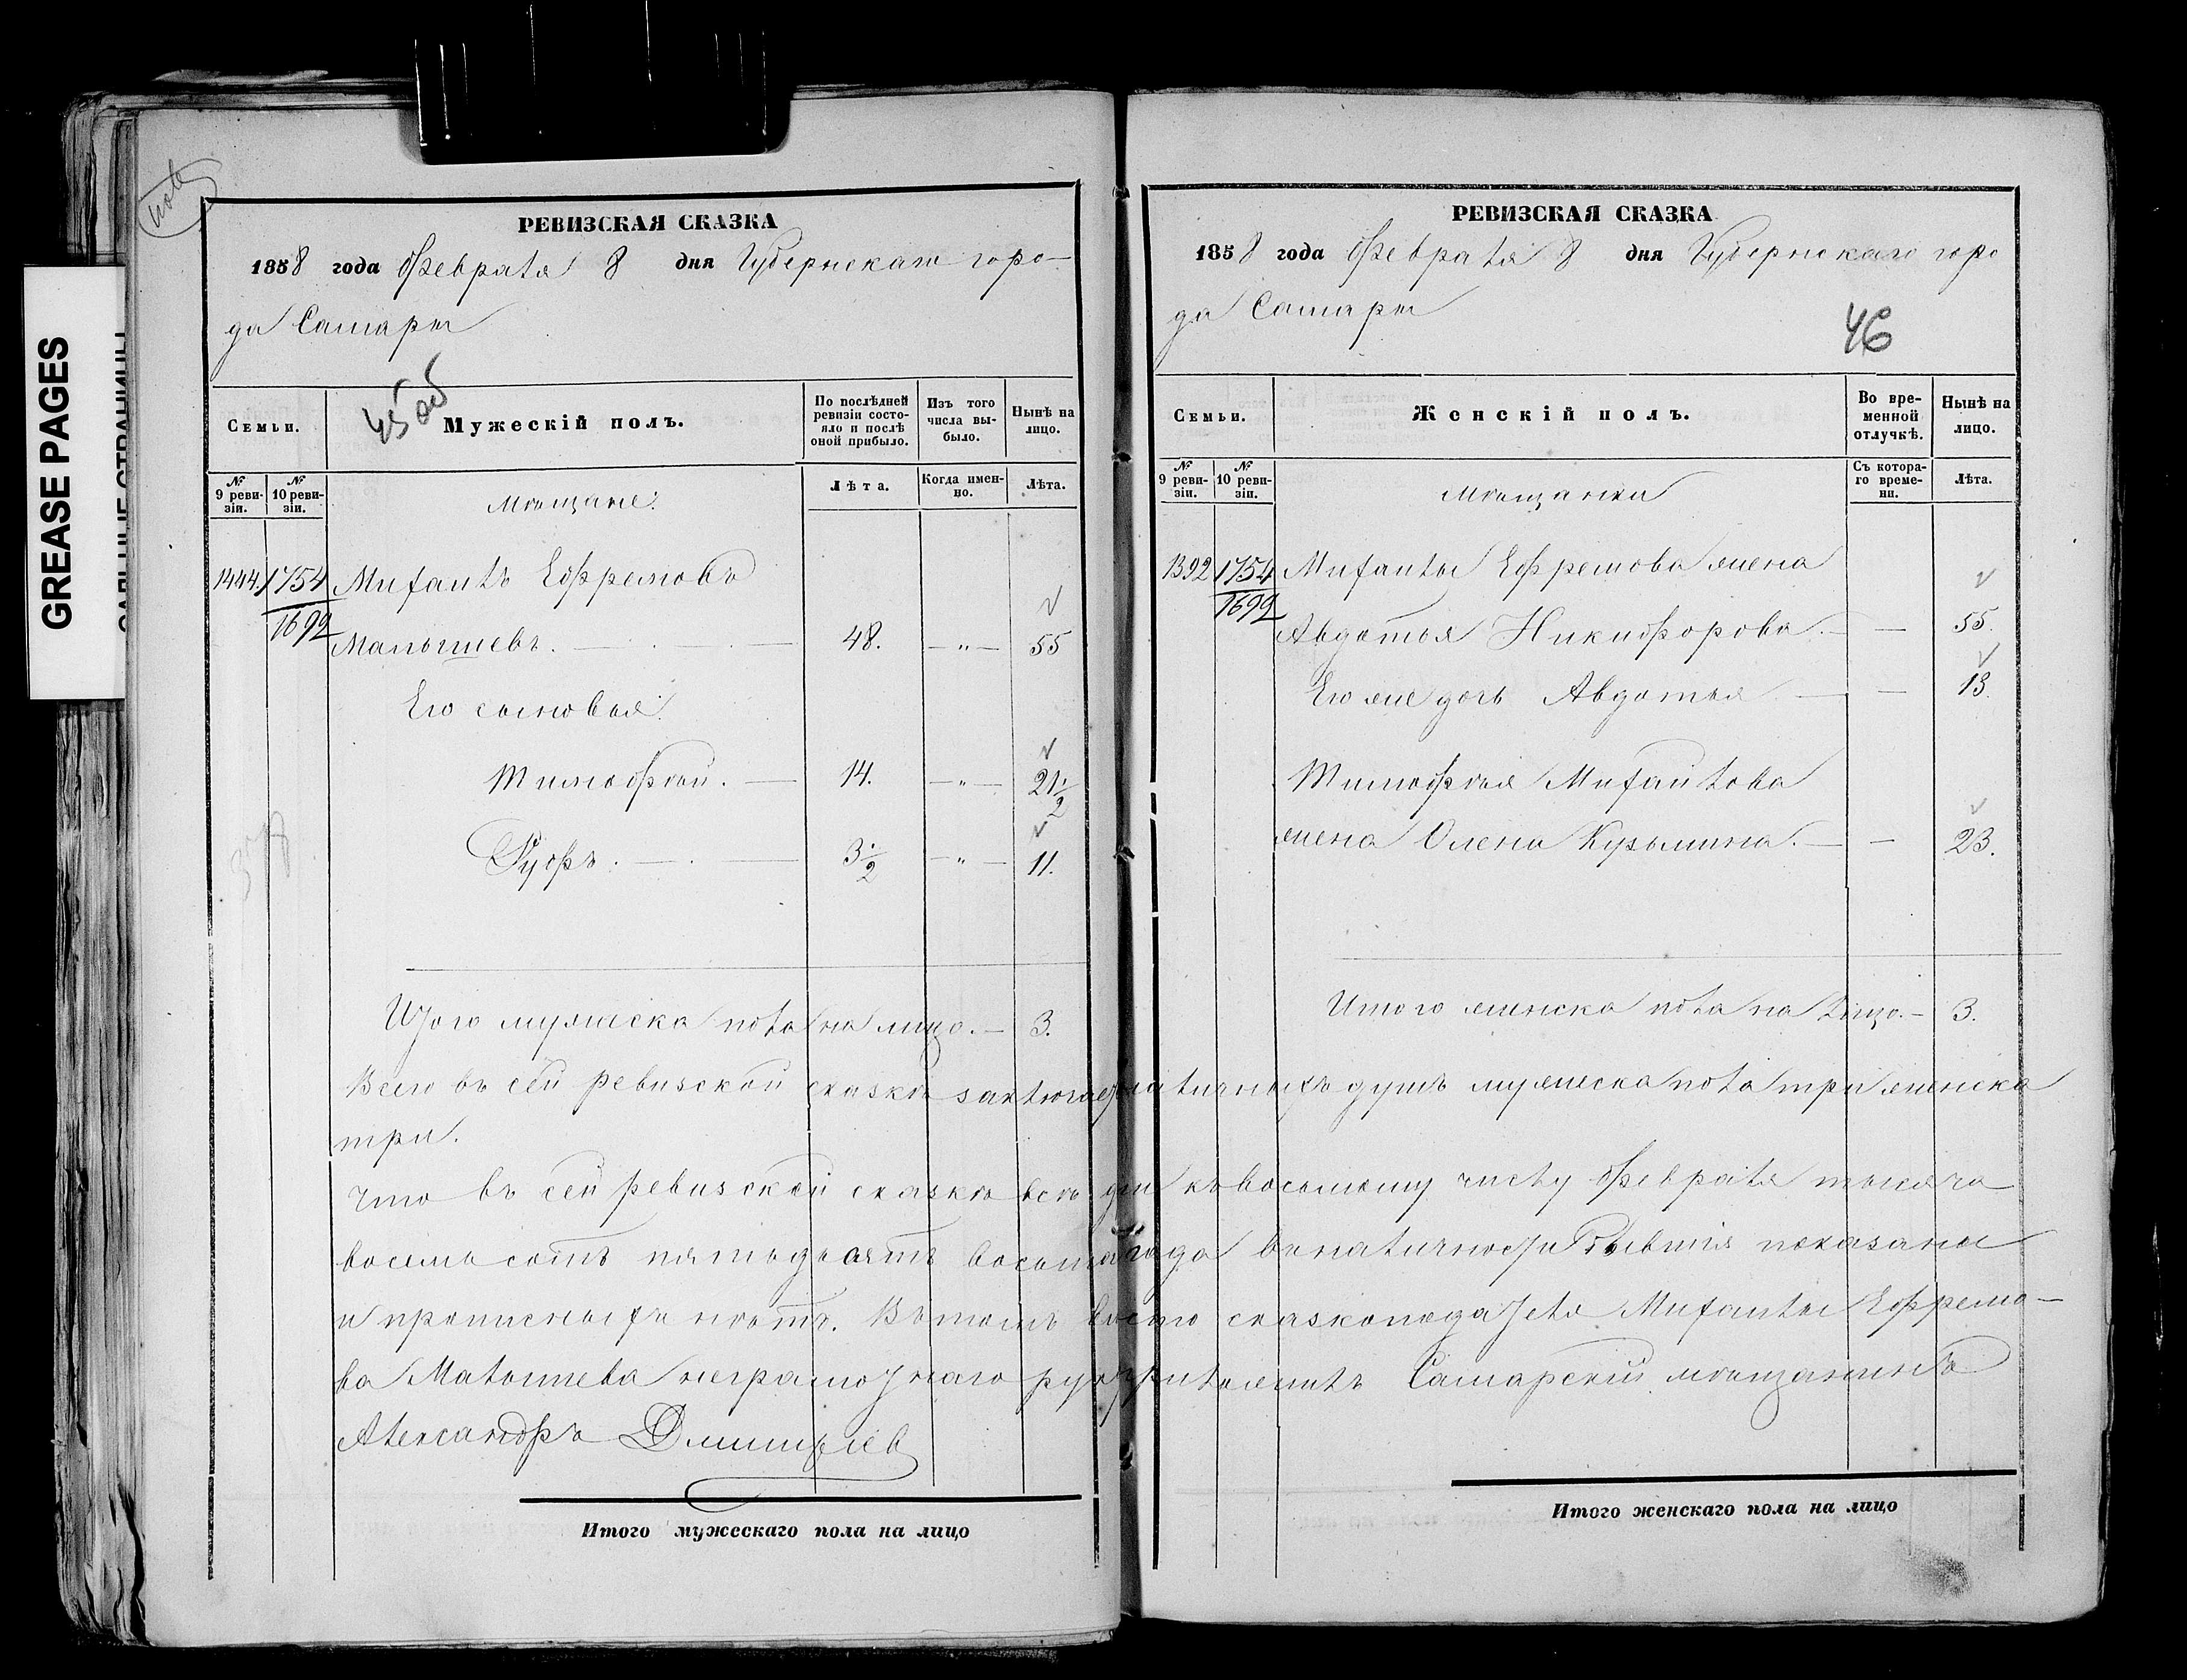 GREASE PAGES
РЕВИЗСКАЯ СКАЗКА
1858 года Февраля 8 дня Губернскаго горо-
да Самары
45об
Семьи.
Мужескій полъ.
По послѣдней ревизіи состояло и послѣ оной прибыло.
Изъ того числа выбыло.
Нынѣ на лицо.
№ 9 ревизіи.
№ 10 ревизіи.
Мѣщане:
Лѣта.
Когда именно.
Лѣта.
1444. 1754 Михаилъ Ефремовъ
1692 Малышевъ. 48. — „ — 55
Его сыновья:
Тимофѣй. 14. — „ — 21½
Гуоръ. 3½ — „ — 11.
Итого мужеска пола на лицо. — 3.
РЕВИЗСКАЯ СКАЗКА
1858 года Февраля 8 дня Губернскаго горо
да Самары
46
Семьи.
Женскій полъ.
Во временной отлучкѣ.
Нынѣ на лицо.
№ 9 ревизіи.
№ 10 ревизіи.
Мѣщанки
Съ котораго времени.
Лѣта.
1392 1754 Михаилы Ефремова жена
1692 Авдотья Никифорова. — — 55.
Его же дочь Авдотья — — 13.
Тимофѣя Михайлова
жена Олена Кузьмина. — — 23.
Итого женска пола на лицо. — 3.
Всего въ сей ревизской сказкѣ заключается наличныхъ душъ мужеска пола три женска
три.
Что въ сей ревизской сказкѣ всѣ къ восьмому числу Февраля тысяча
восемь сотъ пятьдесятъ восьмаго года въ наличности бывшія показаны
и прописныхъ нѣтъ. Въ томъ вмѣсто сказкоподателя Михаилы Ефремо-
ва Малышева неграмотнаго руку приложилъ Самарскій мѣщанинъ
Александръ Дмитріев
Итого мужескаго пола на лицо
Итого женскаго пола на лицо